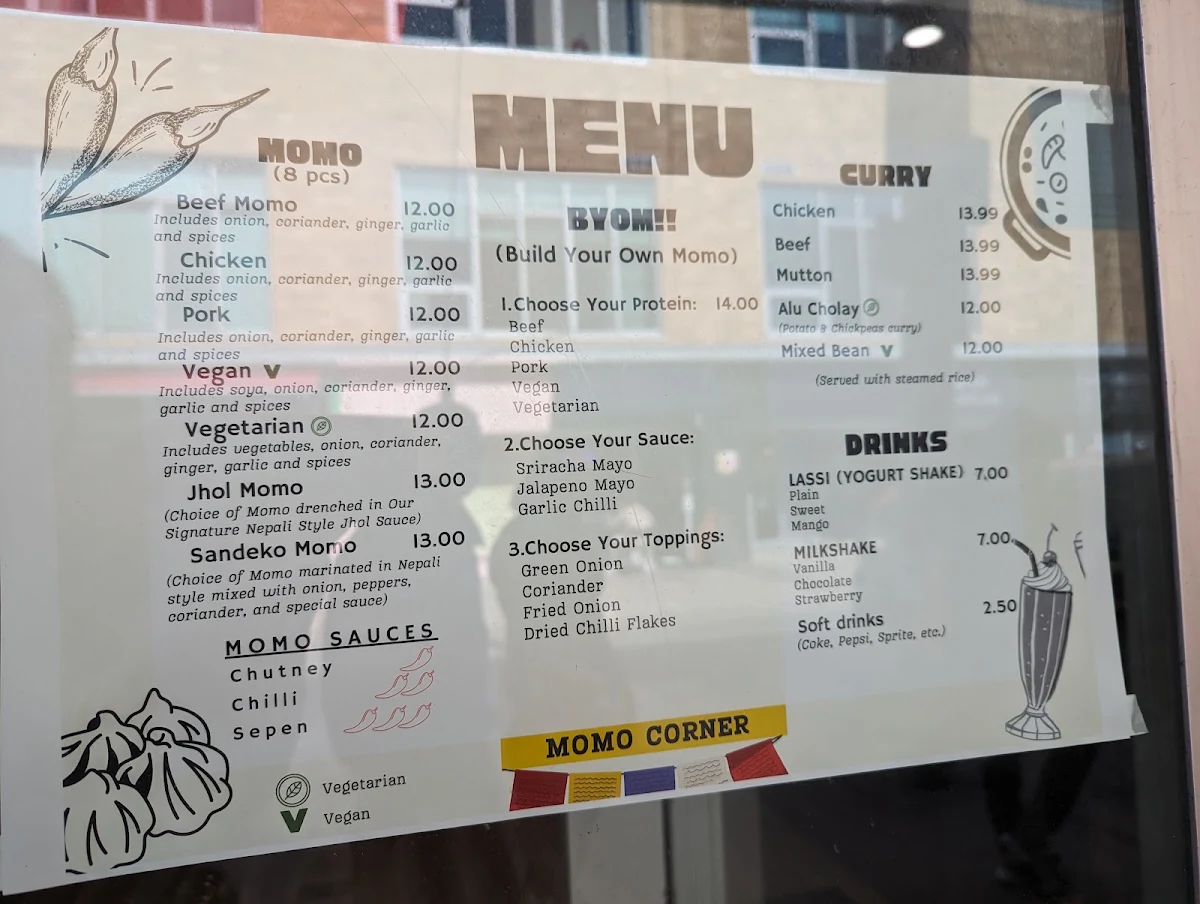 MENU
MOMO
(8 pcs)
Beef Momo 12.00
Includes onion, coriander, ginger, garlic
and spices
Chicken 12.00
Includes onion, coriander, ginger, garlic
and spices
Pork 12.00
Includes onion, coriander, ginger, garlic
and spices
Vegan V 12.00
Includes soya, onion, coriander, ginger,
garlic and spices
Vegetarian 12.00
Includes vegetables, onion, coriander,
ginger, garlic and spices
Jhol Momo 13.00
(Choice of Momo drenched in Our
Signature Nepali Style Jhol Sauce)
Sandeko Momo 13.00
(Choice of Momo marinated in Nepali
style mixed with onion, peppers,
coriander, and special sauce)
MOMO SAUCES
Chutney
Chilli
Sepen
Vegetarian
V Vegan
BYOM!!
(Build Your Own Momo)
1.Choose Your Protein: 14.00
Beef
Chicken
Pork
Vegan
Vegetarian
2.Choose Your Sauce:
Sriracha Mayo
Jalapeno Mayo
Garlic Chilli
3.Choose Your Toppings:
Green Onion
Coriander
Fried Onion
Dried Chilli Flakes
MOMO CORNER
CURRY
Chicken 13.99
Beef 13.99
Mutton 13.99
Alu Cholay 12.00
(Potato & Chickpeas curry)
Mixed Bean V 12.00
(Served with steamed rice)
DRINKS
LASSI (YOGURT SHAKE) 7.00
Plain
Sweet
Mango
MILKSHAKE 7.00
Vanilla
Chocolate
Strawberry
Soft drinks 2.50
(Coke, Pepsi, Sprite, etc.)